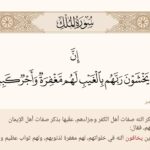 سُورَةُ المُلْكِ
إِنَّ
يَخْشَوْنَ رَبَّهُم بِالْغَيْبِ لَهُم مَّغْفِرَةٌ وَأَجْرٌ كَبِيرٌ
كر الله صفات أهل الكفر وجزاءهم، عقبها بذكر صفات أهل الإيمان
ين يخافون الله في خلواتهم، لهم مغفرة لذنوبهم، ولهم ثواب عظيم و